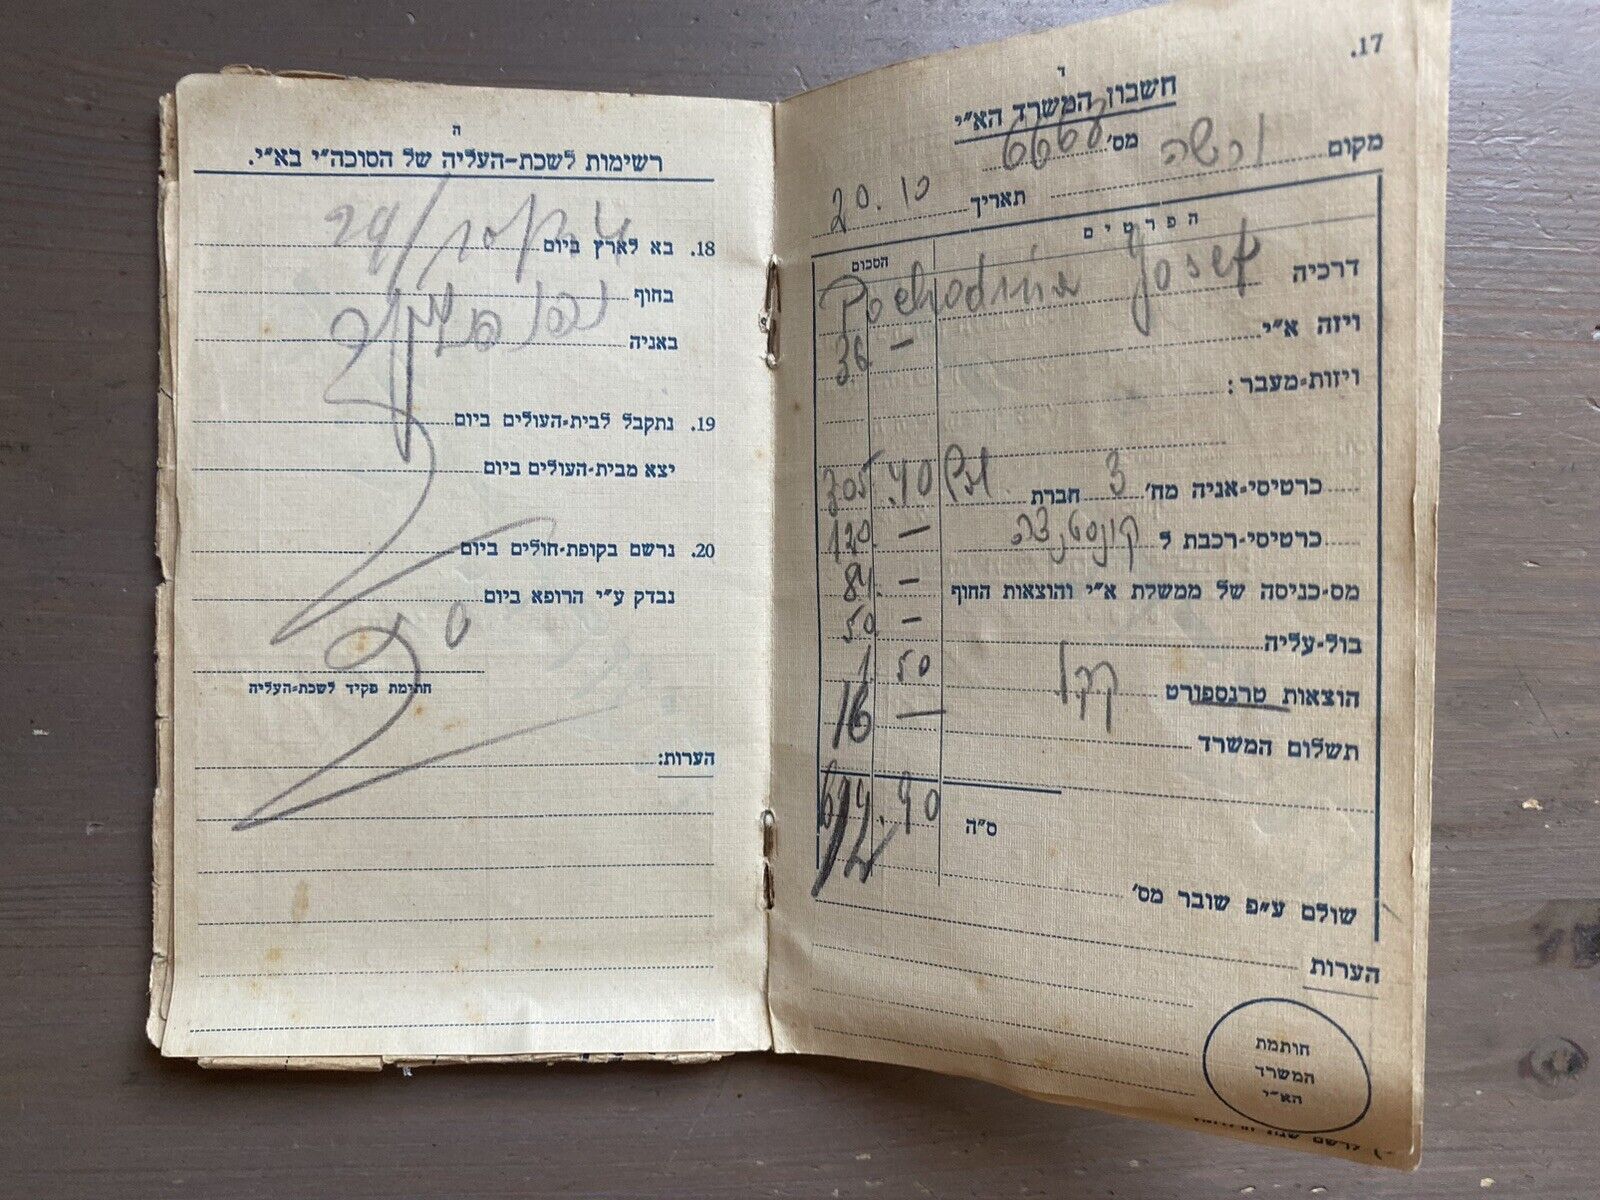 17.
ד
חשבון המשרד הא"י
מקום ורשה מס' 6666
תאריך 20.10
הפרטים
הסכום
דרכיה Josef
ויזה א"י 36 —
ויזות-מעבר:
כרטיסי-אניה מח' 3 חברת 305.40
כרטיסי-רכבת ל קונסטנצה 120. —
מס-כניסה של ממשלת א"י והוצאות החוף 84. —
בול-עליה 50. —
הוצאות טרנספורט קקל 1.50
תשלום המשרד 16 —
ס"ה 612.90
שולם ע"פ שובר מס'
הערות
חותמת
המשרד
הא"י
ה
רשימות לשכת-העליה של הסוכה"י בא"י.
18. בא לארץ ביום
בחוף
באניה
19. נתקבל לבית-העולים ביום
יצא מבית-העולים ביום
20. נרשם בקופת-חולים ביום
נבדק ע"י הרופא ביום
חתימת פקיד לשכת-העליה
הערות: